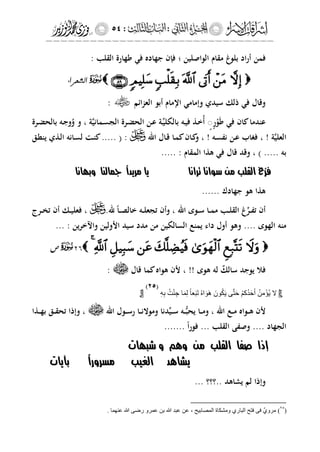 ٥٤ :
فمن أراد بلوغ مقام الواصلين ؛ فإن جهاده في طهارة القلب :
﴿ إِلَّا مَنْ أَتَى ٱللَّهَ بِقَلْبٍ سَلِيمٍ ﴾ الشعراء
وقال في ذلك سيدي وإمامي الإمام أبو العزائم :
عندما كان في طَوْرٍ أُخذَ فيه بالكليَّة عن الحضرة الجسمانيَّة ، و وُوجه بالحضرة
العليَّة ! ، فغاب عن نفسه ! ، وكان كما قال الله : ( ..... كنت لسانه الذي ينطق
به ..... ) ، وقد قال في هذا المقام : .....
فرِّغ القلب من سوانا ترانا يا مريداً جمالنا وبهانا
هذا هو جهادك ......
أن تفرِّغ القلب مما سوى الله ، وأن تجعله خالصاً لله ، فعليك أن تخرج
منه الهوى .... وهو أول داء يمنع السالكين من مدد سيد الأولين والآخرين : ...
﴿ وَلَا تَتَّبِعِ ٱلْهَوَىٰ فَيُضِلَّكَ عَن سَبِيلِ ٱللَّهِ ﴾ ٢٦ ص
فلا يوجد سالكٌ له هوى !! ، لأن هواه كما قال :
﴿ لا يُؤْمِنُ أَحَدُكُمْ حَتَّى يَكُونَ هَوَاهُ تَبَعاً لِمَا جِئْتُ بِهِ ﴾ (٢٥)
لأن هواه مع الله ، وما يحبُّه سيِّدنا ومولانا رسول الله ، وإذا تحقق بهذا
الجهاد .... وصفى القلب ... فوراً .......
إذا صفا القلب من وهم و شبهات
يشاهد الغيب مسروراً بآيات
وإذا لم يشاهد ..؟؟؟ ...
(٢٥) مرويٌ في فتح الباري ومشكاة المصابيح ، عن عبد الله بن عمرو رضى الله عنهما .